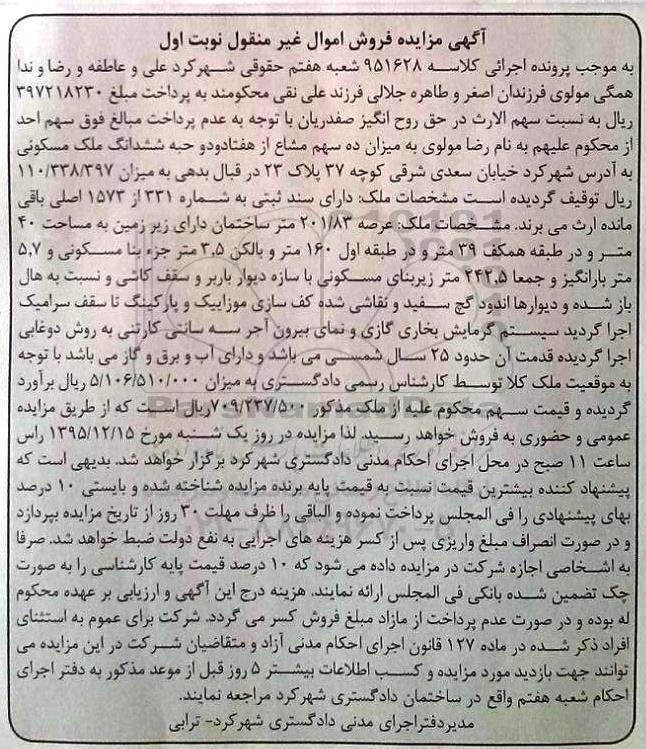 آگهی مزایده فروش اموال غیر منقول نوبت اول
به موجب پرونده اجرائی کلاسه ۹۵۱۶۲۸ شعبه هفتم حقوقی شهرکرد علی و عاطفه و رضا و ندا
همگی مولوی فرزندان اصغر و طاهره جلالی فرزند علی نقی محکومند به پرداخت مبلغ ۳۹۷۲۱۸۲۳۰
ریال به نسبت سهم الارث در حق روح انگیز صفدریان با توجه به عدم پرداخت مبالغ فوق سهم احد
از محکوم علیهم به نام رضا مولوی به میزان ده سهم مشاع از هفتادودو حبه ششدانگ ملک مسکونی
به آدرس شهرکرد خیابان سعدی شرقی کوچه ۳۷ پلاک ۲۳ در قبال بدهی به میزان ۱۱۰/۳۳۸/۳۹۷
ریال توقیف گردیده است مشخصات ملک: دارای سند ثبتی به شماره ۳۳۱ از ۱۵۷۳ اصلی باقی
مانده ارث می برند. مشخصات ملک: عرصه ۲۰۱/۸۳ متر ساختمان دارای زیر زمین به مساحت ۴۰
متر و در طبقه همکف ۳۹ متر و در طبقه اول ۱۶۰ متر و بالکن ۳,۵ متر جزء بنا مسکونی و ۵,۷
متر بارانگیز و جمعا ۲۴۲,۵ متر زیربنای مسکونی با سازه دیوار باربر و سقف کاشی و نسبت به هال
باز شده و دیوارها اندود گچ سفید و نقاشی شده کف سازی موزاییک و پارکینگ تا سقف سرامیک
اجرا گردید سیستم گرمایش بخاری گازی و نمای بیرون آجر سه سانتی کارتنی به روش دوغابی
اجرا گردیده قدمت آن حدود ۲۵ سال شمسی می باشد و دارای آب و برق و گاز می باشد با توجه
به موقعیت ملک کلا توسط کارشناس رسمی دادگستری به میزان ۵/۱۰۶/۵۱۰/۰۰۰ ریال برآورد
گردیده و قیمت سهم محکوم علیه از ملک مذکور ۷۰۹/۲۳۷/۵۰۰ریال است که از طریق مزایده
عمومی و حضوری به فروش خواهد رسید. لذا مزایده در روز یک شنبه مورخ ۱۳۹۵/۱۲/۱۵ راس
ساعت ۱۱ صبح در محل اجرای احکام مدنی دادگستری شهرکرد برگزار خواهد شد. بدیهی است که
پیشنهاد کننده بیشترین قیمت نسبت به قیمت پایه برنده مزایده شناخته شده و بایستی ۱۰ درصد
بهای پیشنهادی را فی المجلس پرداخت نموده و الباقی را ظرف مهلت ۳۰ روز از تاریخ مزایده بپردازد
و در صورت انصراف مبلغ واریزی پس از کسر هزینه های اجرایی به نفع دولت ضبط خواهد شد. صرفا
به اشخاصی اجازه شرکت در مزایده داده می شود که ۱۰ درصد قیمت پایه کارشناسی را به صورت
چک تضمین شده بانکی فی المجلس ارائه نمایند. هزینه درج این آگهی و ارزیابی بر عهده محکوم
له بوده و در صورت عدم پرداخت از مازاد مبلغ فروش کسر می گردد. شرکت برای عموم به استثنای
افراد ذکر شده در ماده ۱۲۷ قانون اجرای احکام مدنی آزاد و متقاضیان شرکت در این مزایده می
توانند جهت بازدید مورد مزایده و کسب اطلاعات بیشتر ۵ روز قبل از موعد مذکور به دفتر اجرای
احکام شعبه هفتم واقع در ساختمان دادگستری شهرکرد مراجعه نمایند.
مدیردفتراجرای مدنی دادگستری شهرکرد- ترابی